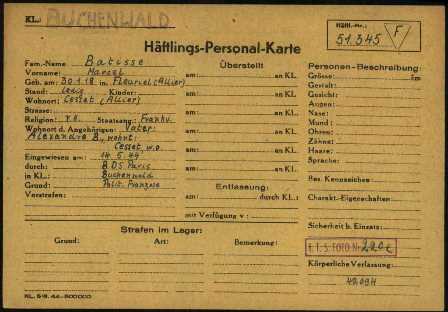 KL: BUCHENWALD
Häftl.-Nr.:
51.345
F
Häftlings-Personal-Karte
Fam.-Name: Batisse
Vorname: Marcel
Geb. am: 30.1.18 in: Fleuriel (Allier)
Stand: ledig Kinder:
Wohnort: Cesset (Allier)
Strasse:
Religion: r.k. Staatsang.: Frankr.
Wohnort d. Angehörigen: Vater:
Alexandre B., wohnt:
Cesset w.o.
Eingewiesen am: 14.5.44
durch: BDS Paris
in KL.: Buchenwald
Grund: Polit. Franzose
Vorstrafen:
Überstellt
am: an KL.
am: an KL.
am: an KL.
am: an KL.
am: an KL.
am: an KL.
Entlassung:
am: durch KL.:
mit Verfügung v.:
Personen-Beschreibung:
Grösse: cm
Gestalt:
Gesicht:
Augen:
Nase:
Mund:
Ohren:
Zähne:
Haare:
Sprache:
Bes. Kennzeichen:
Charakt.-Eigenschaften:
Sicherheit b. Einsatz:
I.T.S. FOTO Nr.
Körperliche Verfassung:
Strafen im Lager:
Grund: Art: Bemerkung: